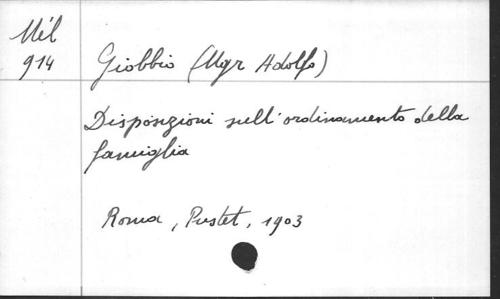 Mél
914
Giobbio (Mgr Adolfo)
Disposizioni sull'ordinamento della
famiglia
Roma, Pustet, 1903